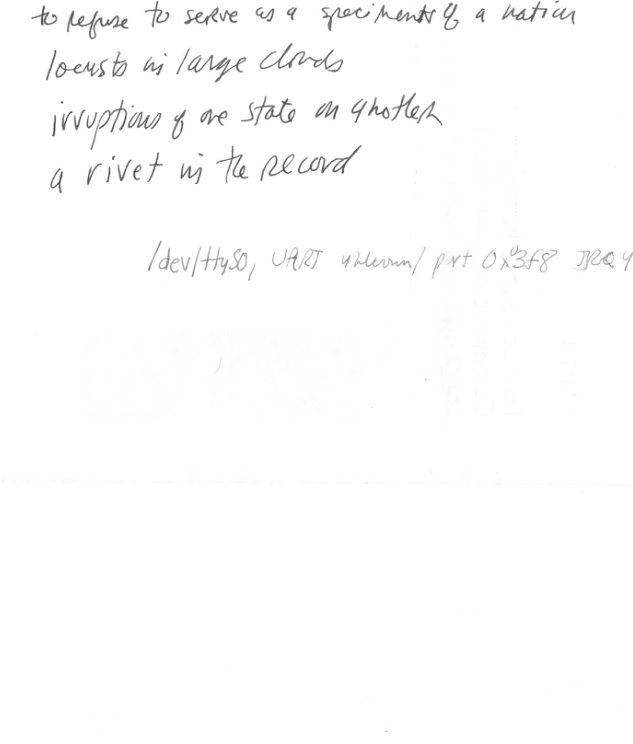 to refuse to serve as a speciments of a nation
locusts in large clouds
irruptions of one state on another
a rivet in the record
/dev/ttyS0, UART unknown, port 0x03f8 IRQ 4